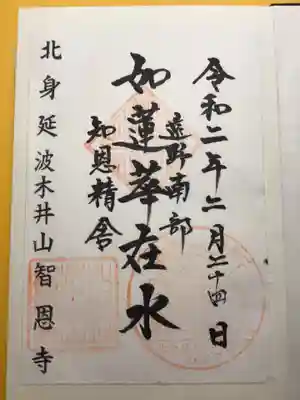 令和二年二月二十四日
遠野南部
如蓮華在水
知恩精舎
北身延波木井山智恩寺